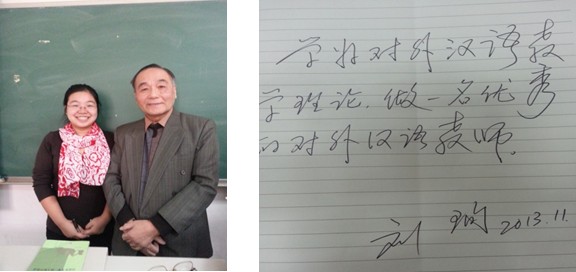 学好对外汉语教
学理论，做一名优秀
的对外汉语教师。
刘珣 2013.11.